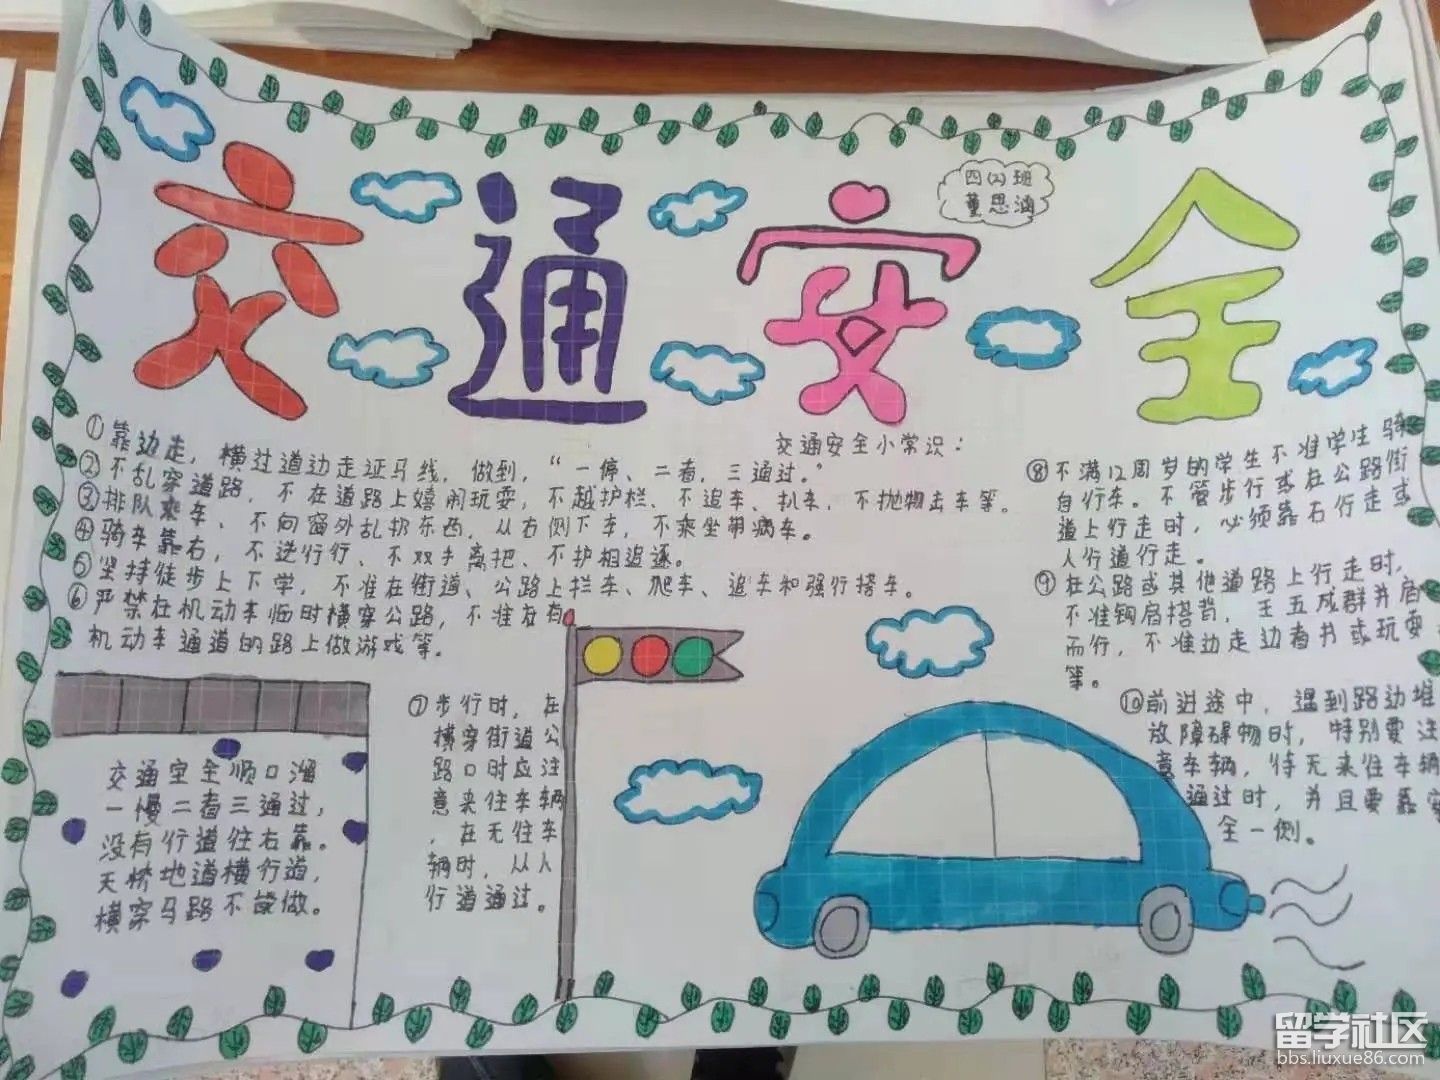 交通安全
四(2)班
董思涵
交通安全小常识：
①靠边走，横过道边走证马线，做到，“一停、二看，三通过。”
②不乱穿道路，不在道路上嬉闹玩耍，不越护栏、不追车、扒车，不抛物击车等。
③排队乘车、不向窗外乱扔东西，从右侧下车，不乘坐带病车。
④骑车靠右，不逆行行、不双手离把、不护相追逐。
⑤坚持徒步上下学，不准在街道、公路上拦车、爬车、追车和强行搭车。
⑥严禁在机动车临时横穿公路，不准在有
机动车通道的路上做游戏等。
交通安全顺口溜
一慢二看三通过，
没有行道往右靠。
天桥地道横行道，
横穿马路不能做。
⑦步行时，在
横穿街道公
路口时应注
意来往车辆
，在无往车
辆时，从人
行道通过。
⑧不满12周岁的学生不准学生骑
自行车。不管步行或在公路街
道上行走时，必须靠右行走或
人行道行走。
⑨在公路或其他道路上行走时，
不准钩肩搭背，王五成群并肩
而行，不准边走边看书或玩耍
等。
⑩前进途中，遇到路边堆
放障碍物时，特别要注
意车辆，待无来往车辆
通过时，并且要靠安
全一侧。
留学社区
bbs.liuxue86.com